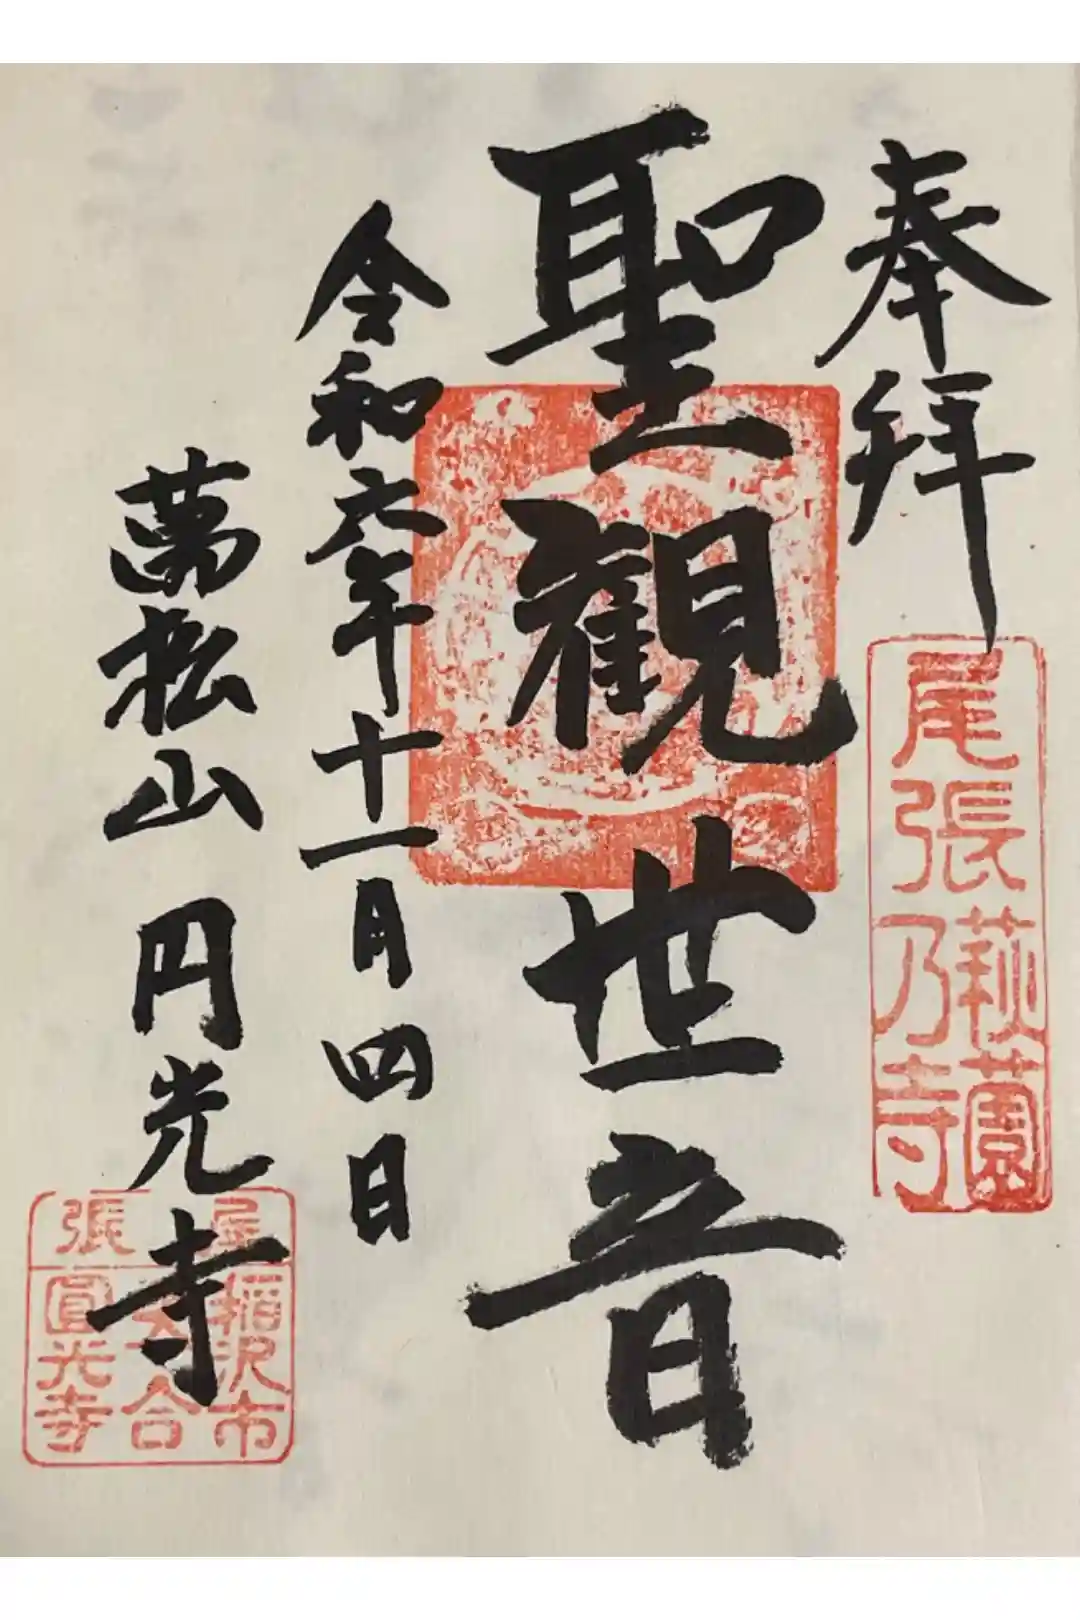 奉拝
尾張
萩園
乃寺
聖観世音
令和六年十一月四日
萬松山 円光寺
尾張
稲沢市
合
圓光寺